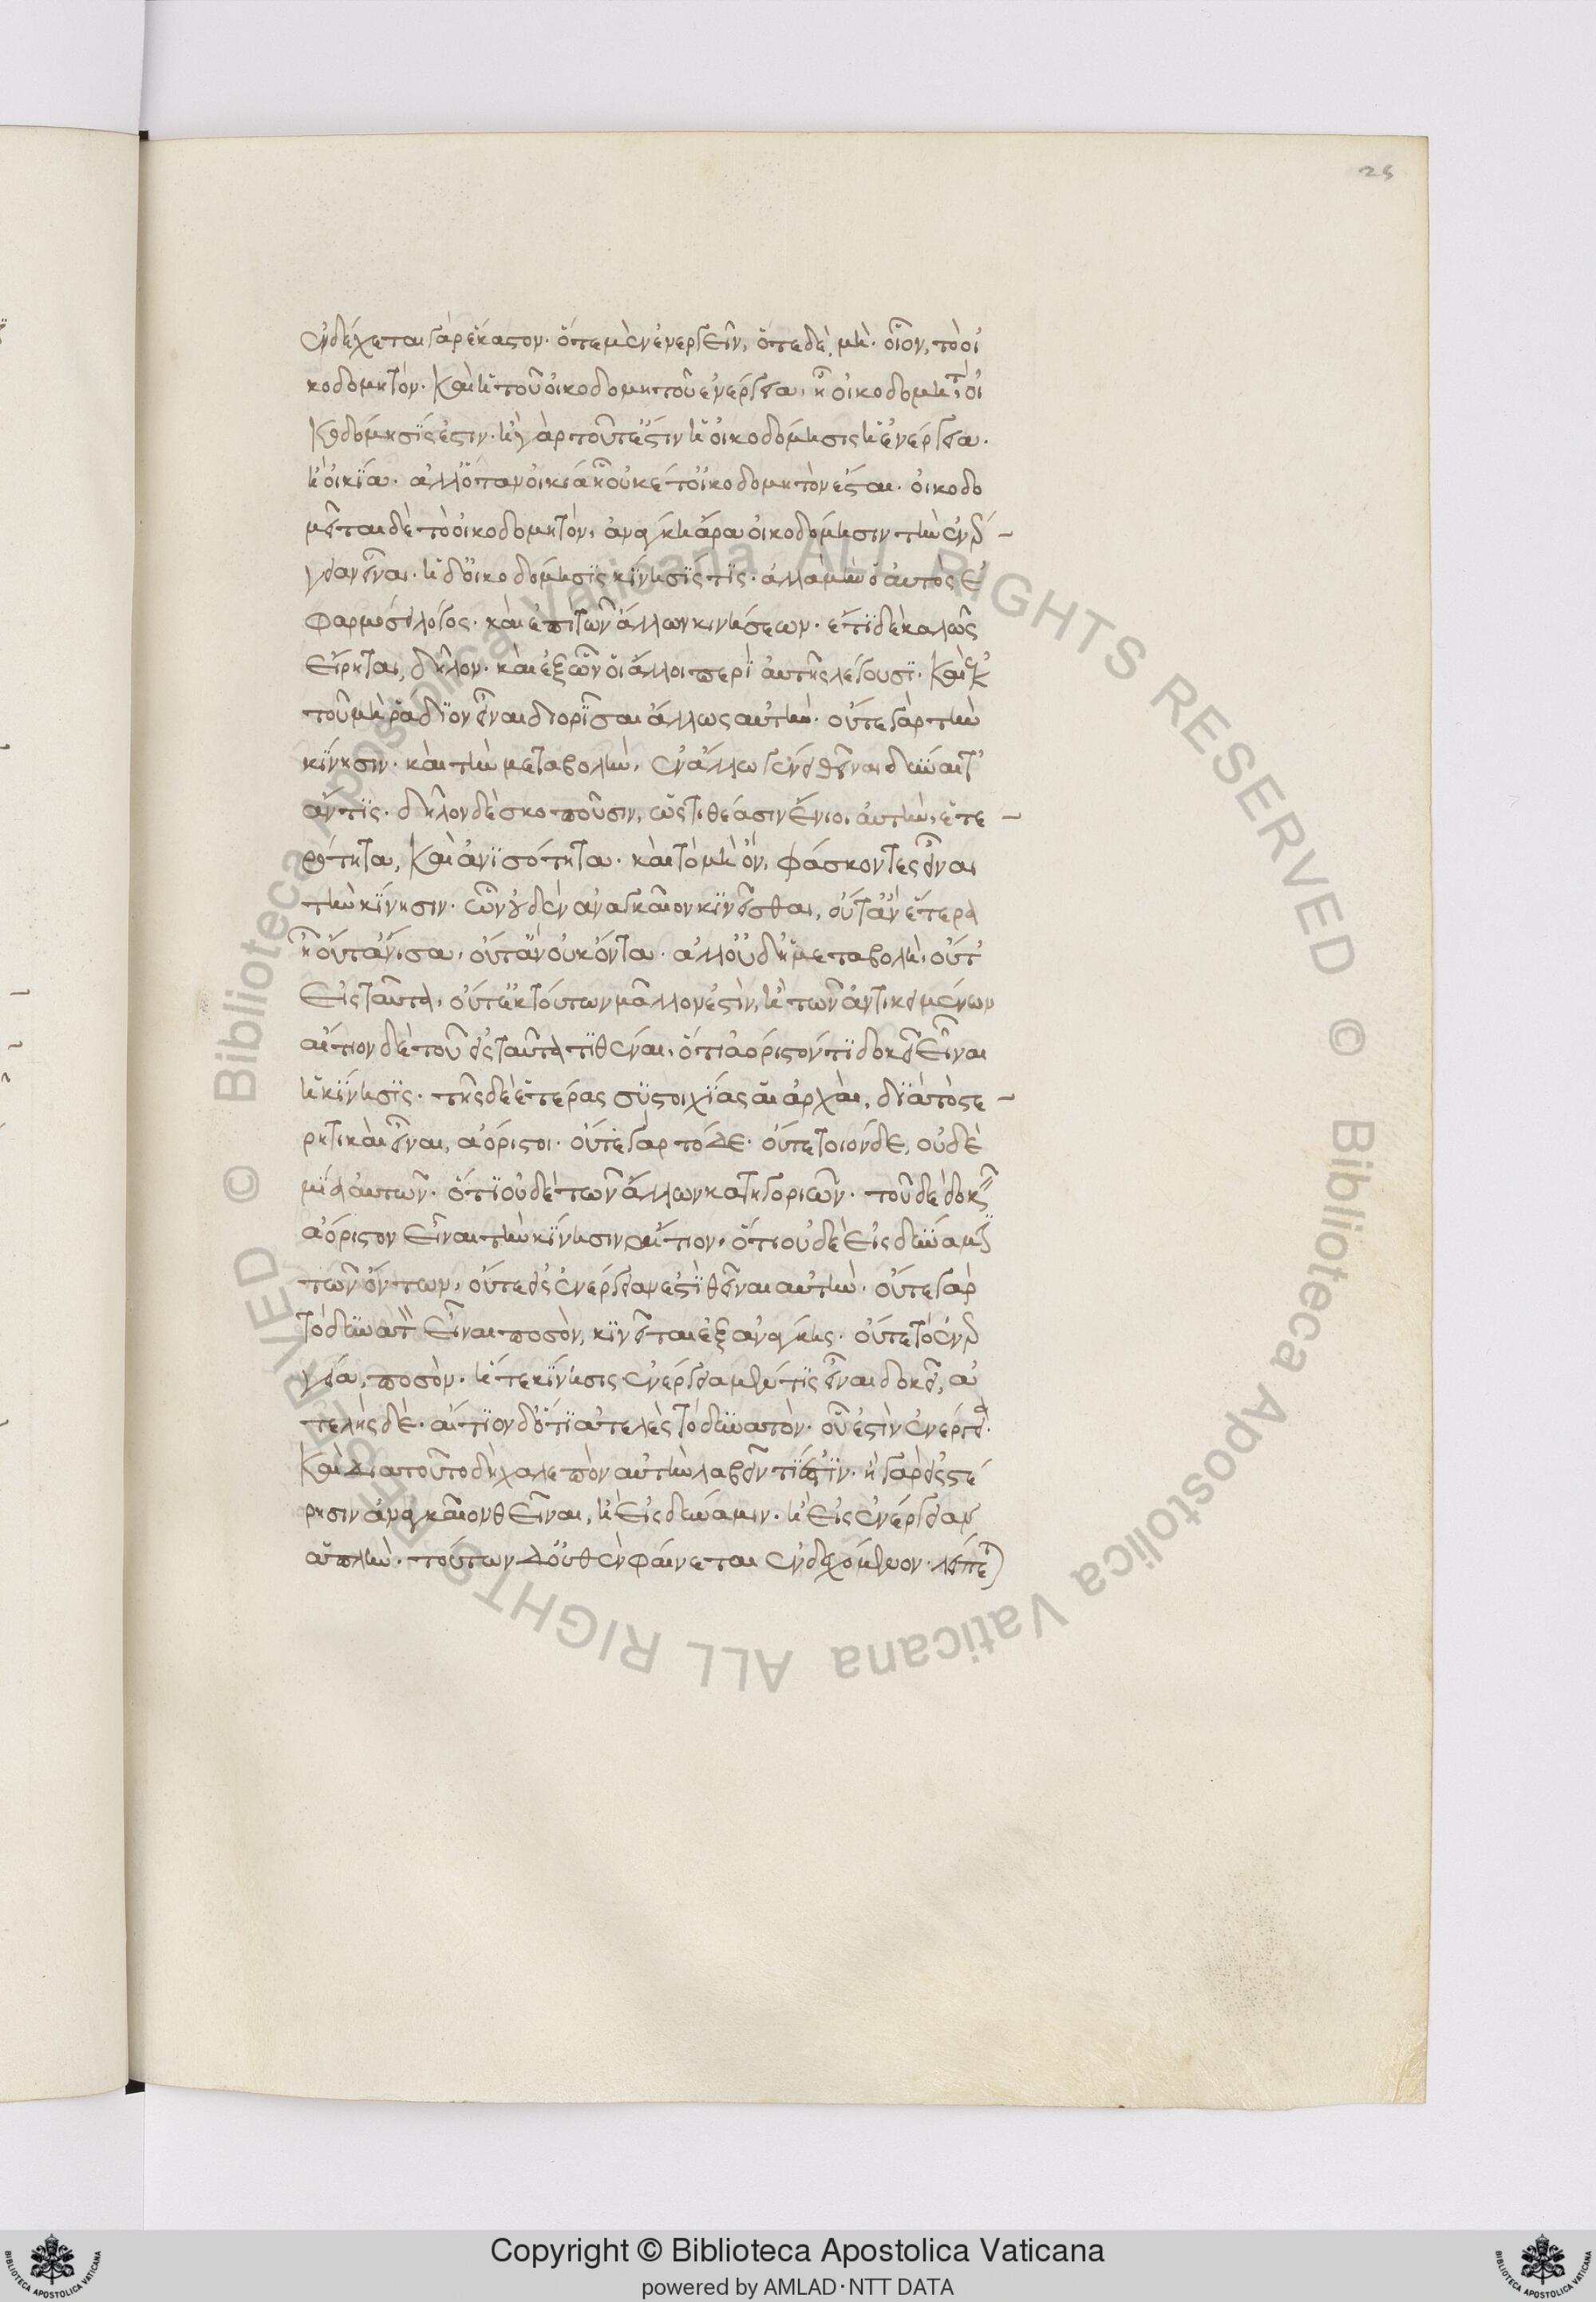 25
ἐνδέχεται γὰρ ἕκαστον. ὅτε μὲν ἐνεργεῖν, ὅτε δὲ, μή. οἷον, τὸ οἰ
κοδομητόν. καὶ ἡ τοῦ οἰκοδομητοῦ ἐνέργεια, ἢ οἰκοδομητὸν, οἰ
κοδόμησίς ἐστιν. ἢ γὰρ τοῦτ' ἔστιν ἡ οἰκοδόμησις ἡ ἐνέργεια.
ἢ οἰκία. ἀλλ' ὅταν οἰκία ᾖ οὐκέτ' οἰκοδομητὸν ἔσται. οἰκοδο
μεῖται δὲ τὸ οἰκοδομητόν, ἀνάγκη ἄρα οἰκοδόμησιν τὴν ἐνέρ
γειαν εἶναι. ἡ δ' οἰκοδόμησις κίνησίς τις. ἀλλὰ μὴν ὁ αὐτὸς ἐ
φαρμόσει λόγος. καὶ ἐπὶ τῶν ἄλλων κινήσεων. ἔτι δὲ καλῶς
εἴρηται, δῆλον. καὶ ἐξ ὧν οἱ ἄλλοι περὶ αὐτῆς λέγουσι. καὶ ἐκ
τοῦ μὴ ῥᾴδιον εἶναι διορίσαι ἄλλως αὐτήν. οὔτε γὰρ τὴν
κίνησιν. καὶ τὴν μεταβολὴν, ἐν ἄλλῳ γένει θεῖναι δύναιτ'
ἄν τις. δῆλον δὲ σκοποῦσιν, ὡς τιθέασιν ἔνιοι αὐτὴν, ἑτε
ρότητα, καὶ ἀνισότητα. καὶ τὸ μὴ ὄν, φάσκοντες εἶναι
τὴν κίνησιν. ὧν οὐδὲν ἀναγκαῖον κινεῖσθαι, οὔτ' ἂν ἕτερα
ᾖ οὔτ' ἄνισα, οὔτ' ἂν οὐκ ὄντα. ἀλλ' οὐδ' ἡ μεταβολὴ, οὔτ'
εἰς ταῦτα, οὔτ' ἐκ τούτων μᾶλλον ἐστὶν, ἢ τῶν ἀντικειμένων
αἴτιον δὲ τοῦ εἰς ταῦτα τιθέναι, ὅτι ἀόριστόν τι δοκεῖ εἶναι
ἡ κίνησις. τῆς δὲ ἑτέρας συστοιχίας αἱ ἀρχαὶ, διὰ τὸ στε
ρητικαὶ εἶναι, ἀόριστοι. οὔτε γὰρ τόδε. οὔτε τοιόνδε, οὐδὲ
μία αὐτῶν. ὅτι οὐδὲ τῶν ἄλλων κατηγοριῶν. τοῦ δὲ δοκεῖν
ἀόριστον εἶναι τὴν κίνησιν αἴτιον, ὅτι οὐδὲ εἰς δύναμιν
τῶν ὄντων, οὔτε εἰς ἐνέργειαν ἔστι θεῖναι αὐτήν. οὔτε γὰρ
τὸ δυνατὸν εἶναι ποσὸν, κινεῖται ἐξ ἀνάγκης. οὔτε τὸ ἐνερ
γείᾳ, ποσόν. ἥ τε κίνησις ἐνέργεια μέν τις εἶναι δοκεῖ, ἀ
τελὴς δέ. αἴτιον δ' ὅτι ἀτελὲς τὸ δυνατὸν. οὗ ἐστὶν ἐνέργεια.
καὶ διὰ τοῦτο δὴ χαλεπὸν αὐτὴν λαβεῖν τί ἐστιν. ἢ γὰρ εἰς στέ
ρησιν ἀναγκαῖον θεῖναι, ἢ εἰς δύναμιν. ἢ εἰς ἐνέργειαν
ἁπλῆν. τούτων δ' οὐθὲν φαίνεται ἐνδεχόμενον. λείπεται
Copyright © Biblioteca Apostolica Vaticana
powered by AMLAD·NTT DATA